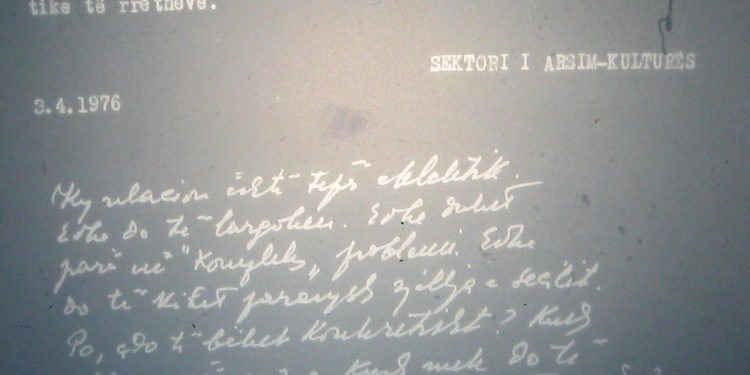 tike të rretheve.
SEKTORI I ARSIM-KULTURËS
3.4.1976
"Ky relacion është tepër eklektik.
Edhe do të largohen. Edhe duhet
parë në "Kompleks" problemi. Edhe
do të kihet parasysh zgjidhja e secilit.
Po, ç'do të bëhet konkretisht? Kush
Kush nuk do të